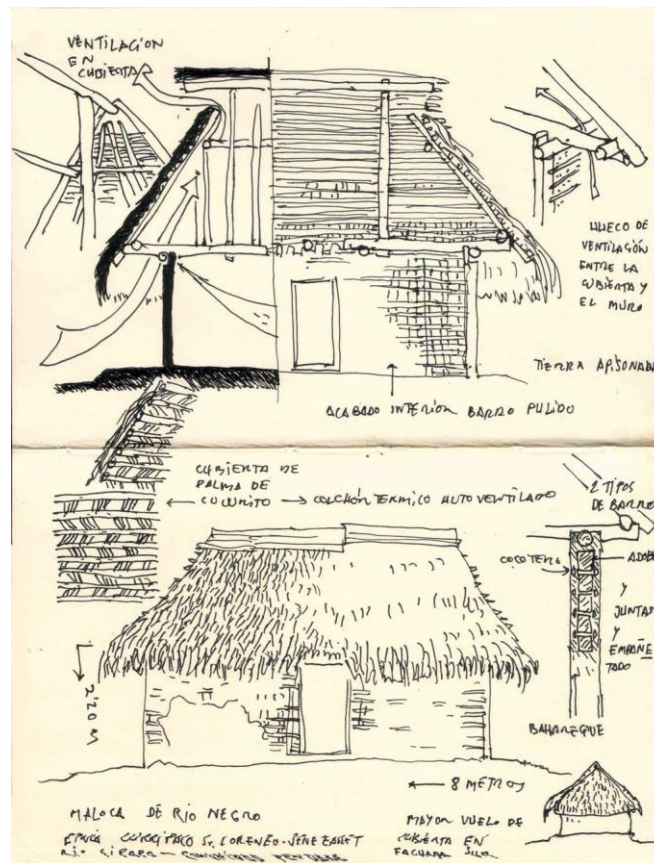 VENTILACION
EN
CUBIERTA
HUECO DE
VENTILACIÓN
ENTRE LA
CUBIERTA Y
EL MURO
TIERRA APISONADA
ACABADO INTERIOR BARRO PULIDO
CUBIERTA DE
PALMA DE
CUCURITO
COLCHÓN TERMICO AUTOVENTILADO
2 TIPOS
DE BARRO
COCOTERO
ADOBE
Y
JUNTAS
Y
EMPAÑE
TADO
BAHAREQUE
2'20 M
8 METROS
MALOCA DE RIO NEGRO
MAYOR VUELO DE
CUBIERTA EN
FACHADA
CURRIPACO S. LORENZO
RIO